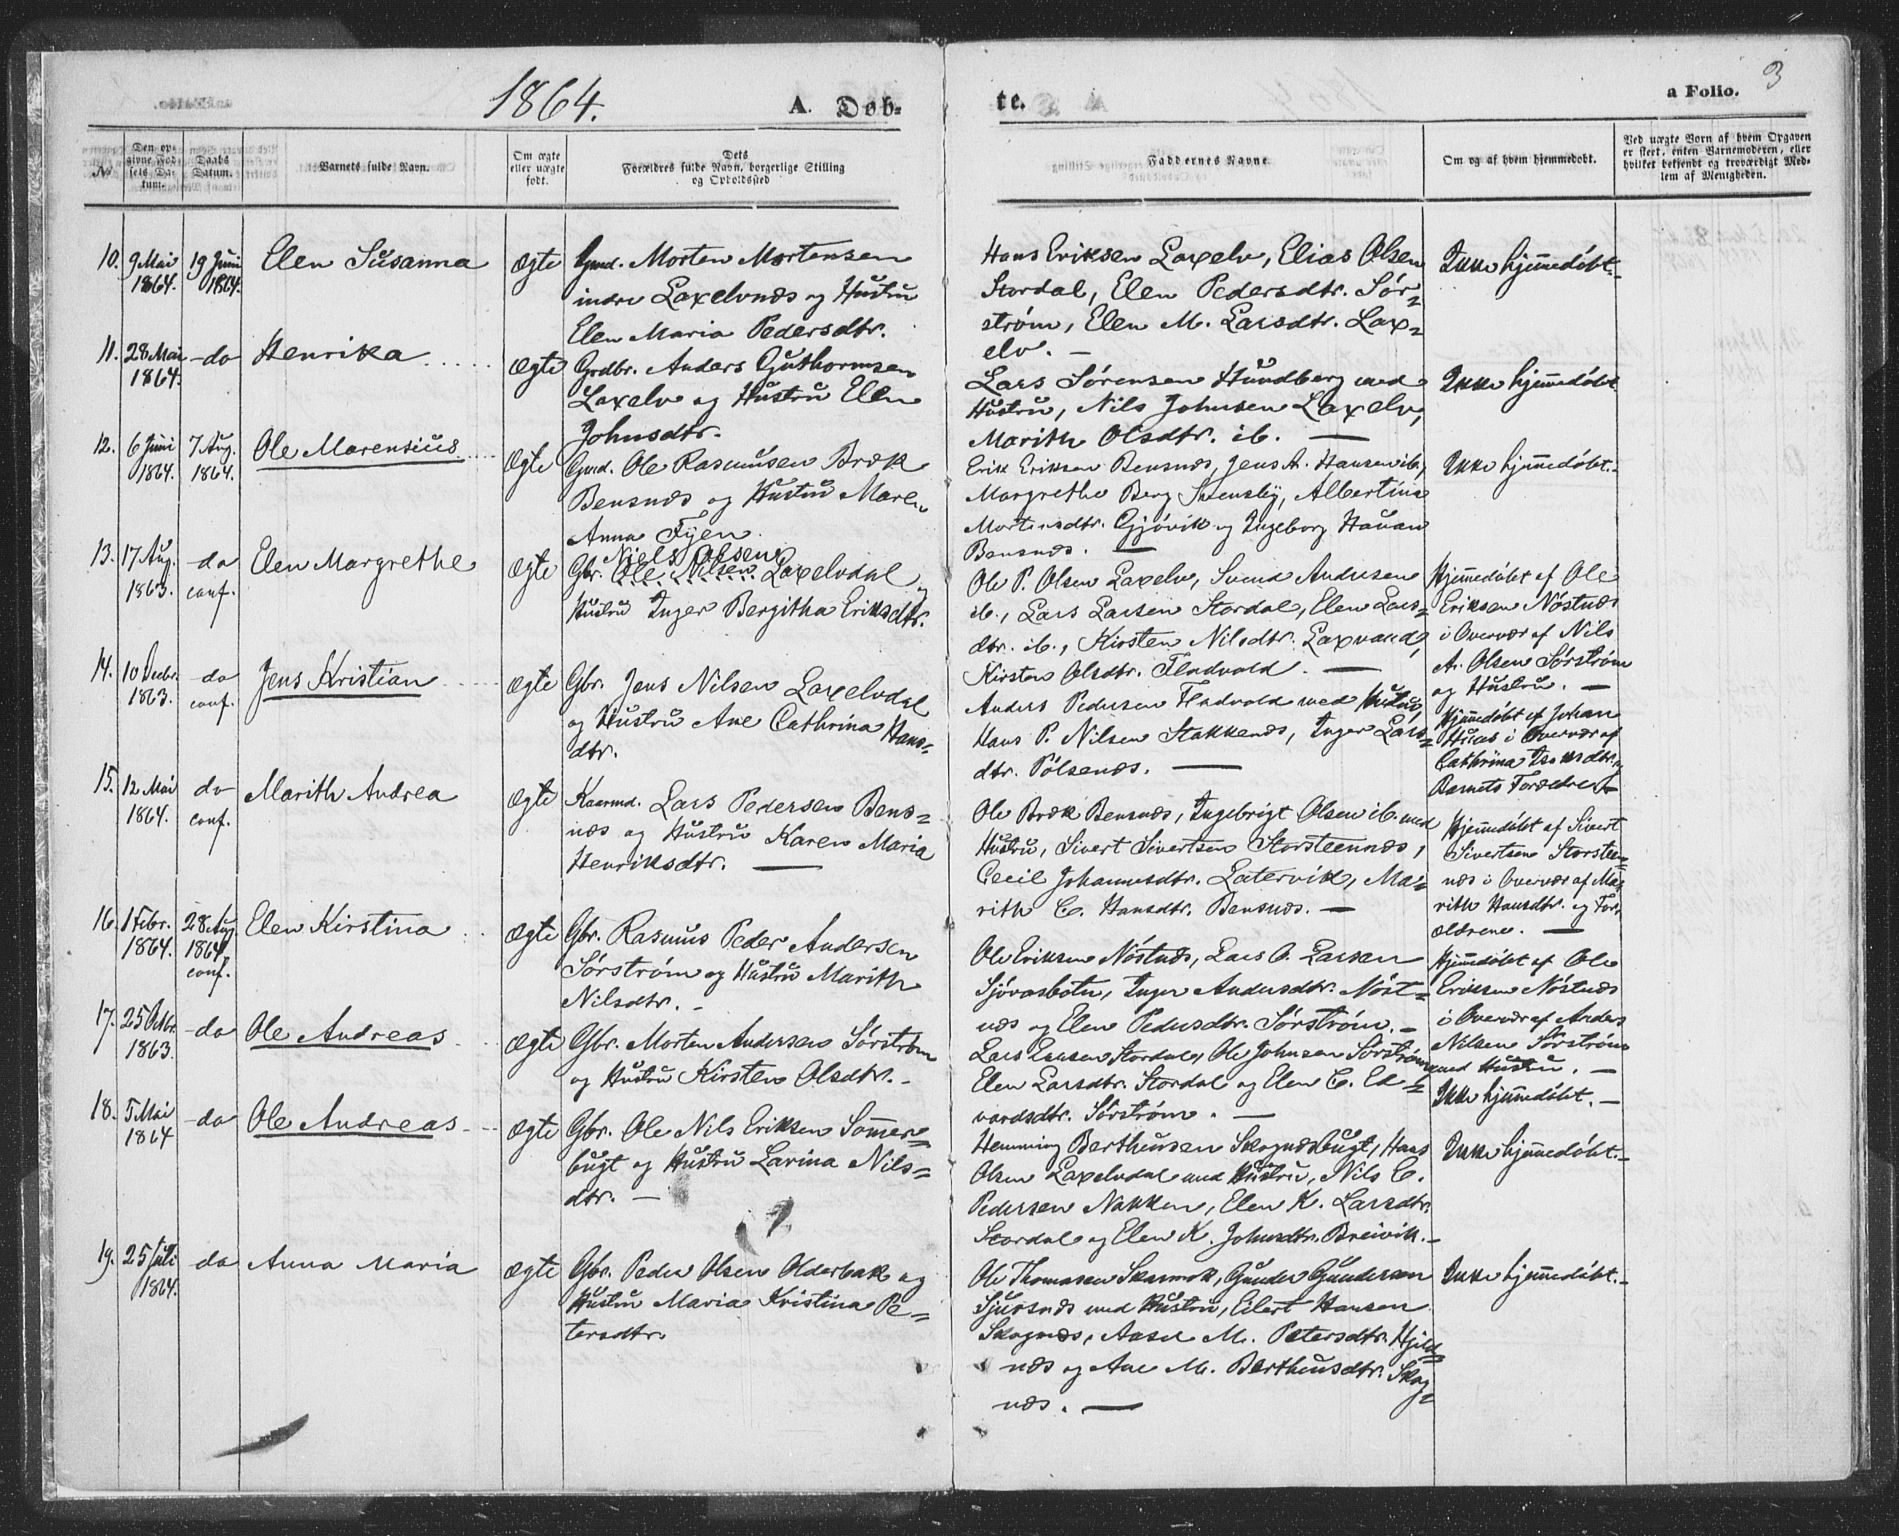 1864.
A. Døb-
te.
a Folio. 3
No
Den op-
givne Fød-
sels Da-
tum.
Daabs
Datum.
Barnets fulde Navn.
Om ægte
eller uægte
født.
Dets
Forældres fulde Navn, borgerlige Stilling
og Opholdssted
Faddernes Navne.
Om og af hvem hjemmedøbt.
Ved uægte Børn af hvem Opgaven
er skeet, enten Barnemoderen, eller
hvilket bekjendt og troværdigt Med-
lem af Menigheden.
10. 9 Mai
1864.
19 Juni
1864.
Elen Susanna
Ægte
Gmd. Morten Mortensen
indre Laxelvnæs og Hustru
Elen Maria Pedersdtr.
Hans Eriksen Laxelv, Elias Olsen
Stordal, Elen Pedersdtr. Sør-
strøm, Elen M. Larsdtr. Lax-
elv. —
Ikke hjemmedøbt.-
11. 28 Mai
1864.
-do
Henrika
Ægte
Grdbr. Anders Guthormsen
Laxelv og Hustru Elen
Johnsdtr.
Lars Sørensen Hundberg med
Hustru, Nils Johnsen Laxelv,
Marith Olsdtr. ib. —
Ikke hjemmedøbt
12. 6 Juni
1864.
7 Aug.
1864.
Ole Marensius
Ægte
Gmd. Ole Rasmusen Bræk
Bensnæs og Hustru Maren
Anna Fyen
Erik Eriksen Bensnæs, Jens A. Hansen ib.,
Margrethe Berg Svensby, Albertine
Mortensdtr. Gjøvik og Ingeborg Hanan
Bensnæs. —
Ikke hjemmedøbt.-
13. 17 Aug.
1863.
do
conf.
Elen Margrethe
Ægte
Niels Olsen
Gbr. Ole Nilsen Laxelvdal og
Hustru Inger Bergitha Eriksdtr.
Ole P. Olsen Laxelv, Svend Andresen
ib., Lars Larsen Stordal, Elen Lars-
dtr. ib., Kirsten Nilsdtr. Laxvand,
Kirsten Olsdtr. Fladvold. —
Hjemmedøbt af Ole
Eriksen Nöstnæs
i Overvær af Nils
A. Olsen Sørstrøm
og Hustru. —
14. 10 Decbr.
1863.
do
conf.
Jens Kristian
Ægte
Gbr. Jens Nilsen Laxelvdal
og Hustru Ane Cathrina Hans-
dtr.
Anders Pedersen Fladvold med Hustru,
Hans P. Nilsen Stakkenæs, Inger Lars-
dtr. Pølsenæs. —
Hjemmedøbt af Johan
i Overvær af
Cathrina
Barnets Forældre. —
15. 12 Mai
1864.
do
conf.
Marith Andrea
Ægte
Kaarmd. Lars Pedersen Bens-
næs og Hustru Karen Maria
Henriksdtr. —
Ole Bræk Bensnæs, Ingebrigt Olsen ib. med
Hustru, Sivert Sivertsen Storsteennæs,
Cecil Johannesdtr. Latervik, Ma-
rith C. Hansdtr. Bensnæs. —
Hjemmedøbt af Sivert
Sivertsen Storsteen-
næs i Overvær af Ma-
rith Hansdtr. og For-
ældrene. —
16. 1 Febr.
1864.
28 Aug.
1864,
conf.
Elen Kirstina
Ægte
Gbr. Rasmus Peder Andersen
Sørstrøm og Hustru Marith
Nilsdtr. -
Ole Eriksen Nöstnæs, Lars O. Larsen
Sjövasbotn, Inger Andersdtr. Nöst-
næs og Elen Pedersdtr. Sørstrøm. -
Hjemmedøbt af Ole
Eriksen Nöstnæs
i Overvær af Anders
Nilsen Sørstrøm
med Hustru. —
17. 25 Octbr.
1863
-do
Ole Andreas
Ægte
Gbr. Morten Andersen Sørstrøm
og Hustru Kirsten Olsdtr. -
Lars Larsen Stordal, Ole Johnsen Sørstrøm
Elen Larsdtr. Stordal og Elen C. Ed-
vardsdtr. Sørstrøm. —
Ikke hjemmedøbt. —
18. 5 Mai
1864
do
Ole Andreas
Ægte
Gbr. Ole Nils Eriksen Sommer-
bugt og Hustru Larina Nils-
dtr. —
Hemming Berthensen Skognæsbugt, Hans
Olsen Laxelvdal med Hustru, Nils C.
Pedersen Nakken, Elen K. Larsdtr.
Stordal og Elen K. Johnsdtr. Breivik. -
Ikke hjemmedøbt. -
19. 25 Juli
1864.
do
Anna Maria
Ægte
Gbr. Peder Olsen Olderbak og
Hustru Maria Kristina Pe-
tersdtr.
Ole Thomasen Skarmok, Gunder Gundersen
Sjursnæs med Hustru, Eilert Hansen
Skognæs, Aasel M. Petersdtr. Hjeld-
næs og Ane M. Berthensdtr. Skog-
næs. —
Ikke hjemmedøbt. -